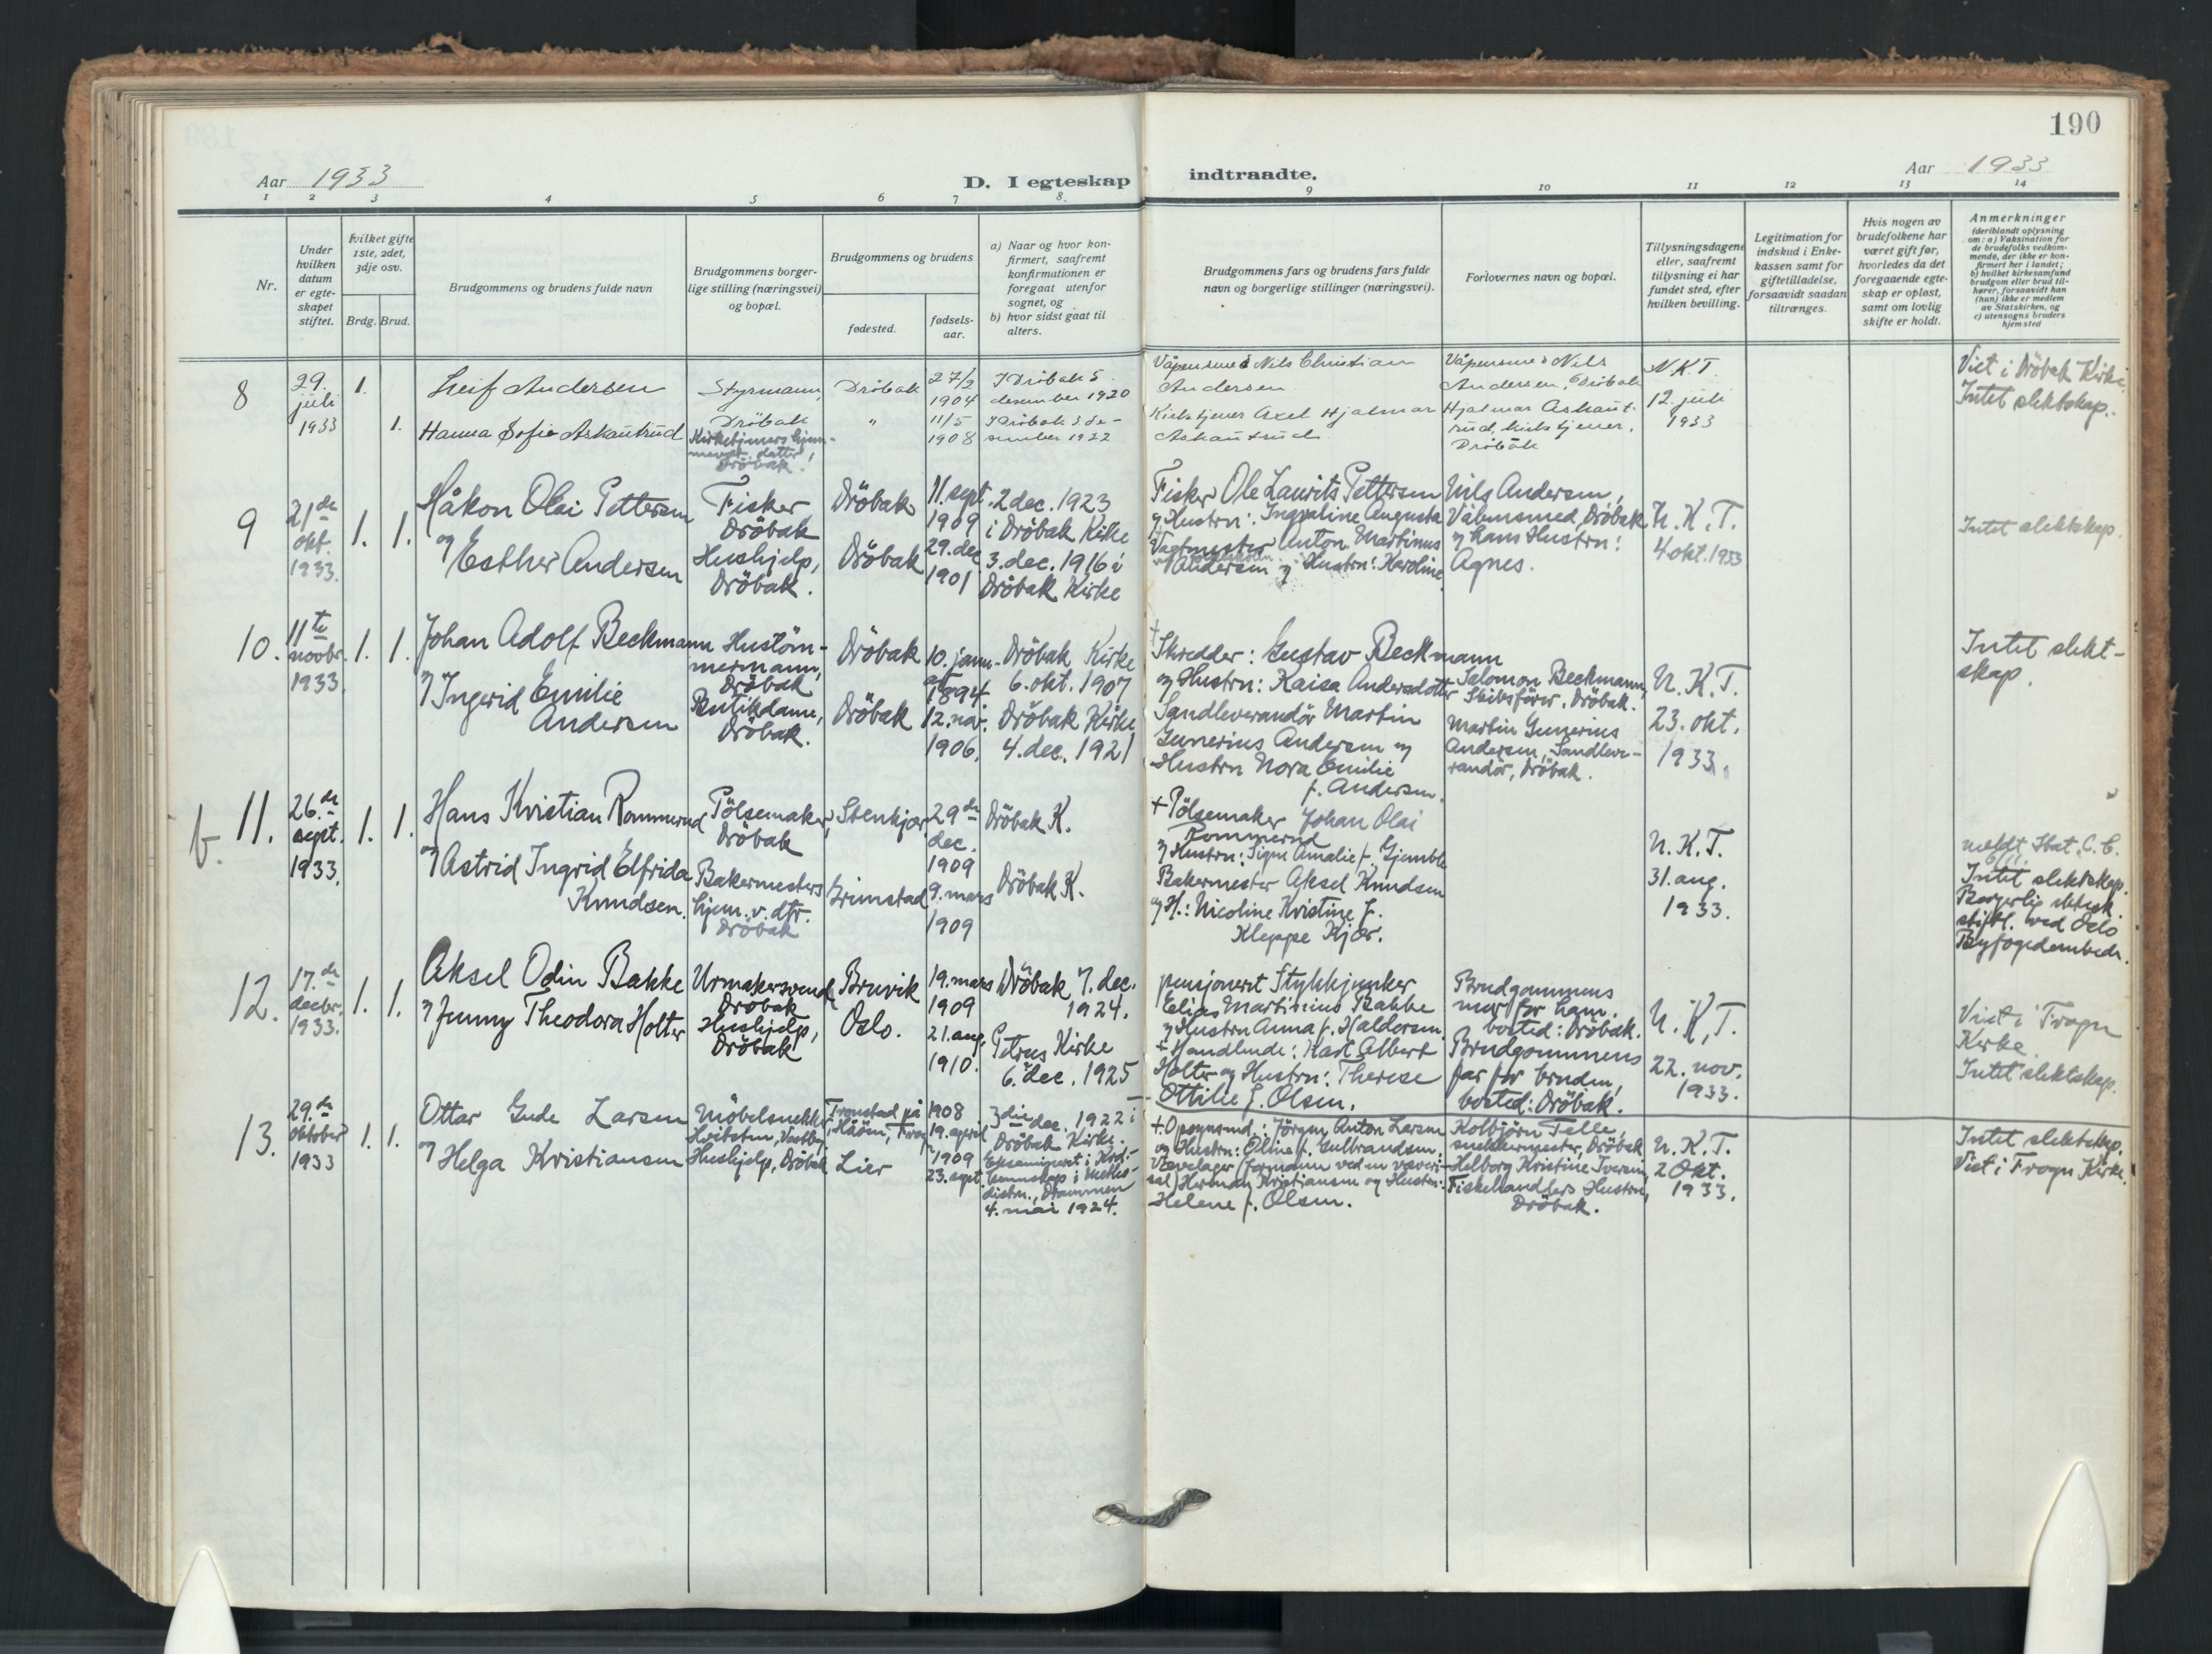 190
Aar 1933
D. I egteskap
indtraadte.
Aar 1933
1 2 3 4 5 6 7 8. 9 10 11 12 13 14
Nr.
Under
hvilken
datum
er egte-
skapet
stiftet.
hvilket gifte
1ste, 2det,
3dje osv.
Brdg. Brud.
Brudgommens og brudens fulde navn
Brudgommens borger-
lige stilling (næringsvei)
og bopæl.
Brudgommens og brudens
fødested.
fødsels-
aar.
a) Naar og hvor kon-
firmert, saafremt
konfirmationen er
foregaat utenfor
sognet, og
b) hvor sidst gaat til
alters.
Brudgommens fars og brudens fars fulde
navn og borgerlige stillinger (næringsvei).
Forlovernes navn og bopæl.
Tillysningsdagene
eller, saafremt
tillysning ei har
fundet sted, efter
hvilken bevilling.
Legitimation for
indskud i Enke-
kassen samt for
giftetilladelse,
forsaavidt saadan
tiltrænges.
Hvis nogen av
brudefolkene har
været gift før,
hvorledes da det
foregaaende egte-
skap er opløst,
samt om lovlig
skifte er holdt.
Anmerkninger
(deriblandt oplysning
om: a) Vaksination for
de brudefolks vedkom-
mende, der ikke er kon-
firmert her i landet;
b) hvilket kirkesamfund
brudgom eller brud til-
hører, forsaavidt han
(hun) ikke er medlem
av Statskirken, og
c) utensogns bruders
hjemsted
8
29.
juli
1933
1.
1.
Leif Andersen
Hanna Sofie Askautrud
Styrmann,
Dröbak
Kirketjeners hjem-
meværd. datter,
Dröbak.
Dröbak
"
27/2
1904
11/5
1908
I Dröbak 5
desember 1920
I Dröbak 3 de-
sember 1922
Våpensmed Nils Christian
Andersen
Kirketjener Axel Hjalmar
Askautrud
Våpensmed Nils
Andersen, Dröbak
Hjalmar Askaut-
rud, kirketjener,
Dröbak
N.K.T.
12. juli
1933
Viet i Dröbak Kirke.
Intet slektskap.
9
21de
okt.
1933.
1. 1.
Håkon Olai Pettersen
og
Esther Andersen
Fisker
Dröbak
Hushjelp,
Dröbak.
Dröbak
Dröbak
11. sept.
1909
29. dec
1901
2 dec. 1923
i Dröbak Kirke
3. dec. 1916 i
Dröbak Kirke
Fisker Ole Laurits Pettersen
og Hustru: Ingvaline Augusta
Vagtmester Anton Martinus
Andersen og Hustru: Karoline
Nils Andersen,
Våbensmed, Dröbak
og hans Hustru:
Agnes.
N.K.T.
4 okt. 1933
Intet slektskap.
10.
11te
novbr.
1933.
1. 1.
Johan Adolf Beckmann
og Ingerid Emilie
Andersen
Hustöm-
mermann,
Dröbak
Butikdame,
Dröbak.
Dröbak
Dröbak
10. janu-
ar
1894.
12. nov.
1906.
Dröbak Kirke
6. okt. 1907
Dröbak Kirke
4. dec. 1921
+ Skredder: Gustav Beckmann
og Hustru: Kaisa Andersdotter
Sandleverandör Martin
Gunerius Andersen og
Hustru Nora Emilie
f. Andersen.
Salomon Beckmann,
Skibsförer, Dröbak.
Martin Gunerius
Andersen, Sandleve-
randör, Dröbak.
N.K.T.
23. okt.
1933.
Intet slekt-
skap.
b. 11.
26.de
sept.
1933.
1. 1.
Hans Kristian Rommerud
og Astrid Ingrid Elfrida
Knudsen.
Pölsemaker,
Dröbak
Bakermesters
hjem.v.dtr.
Dröbak
Stenkjær
Grimstad
29de
dec.
1909
9. mars
1909
Dröbak K.
Dröbak K.
+ Pölsemaker Johan Olai
Rommerud
og Hustru: Signe Amalie f. Gjemble
Bakermester Aksel Knudsen
og H.: Nicoline Kristine f.
Kleppe Kjær.
N.K.T.
31. aug.
1933.
meldt Stat. C. B.
6/11.
Intet slektskap.
Borgerlig ektesk.
stiftet. ved Oslo
Byfogedembede.
12.
17.de
decbr.
1933.
1. 1.
Aksel Odin Bakke
og Jenny Theodora Holter
Urmakersvend
Dröbak
Hushjelp,
Dröbak
Bruvik
Oslo.
19. mars
1909
21. aug.
1910.
Dröbak 7. dec.
1924.
Petrus Kirke
6. dec. 1925
pensjonert Stykkjunker
Elias Martinius Bakke
og Hustru Anna f. Haldorsen.
+ Handlende: Karl Albert
Holter og Hustru: Therese
Ottilie f. Olsen.
Brudgommens
mor for ham.
bosted: Dröbak.
Brudgommens
far for bruden,
bosted: Dröbak.
N.K.T.
22. nov.
1933.
Viet i Frogn
Kirke.
Intet slektskap.
13.
29.de
oktober
1933
1. 1.
Ottar Gude Larsen
og Helga Kristiansen
Möbelsnekker
Hvitsten, Vestby
Hushjelp, Dröbak
Tronstad på
Håöen, Frogn
Lier
1908
19. april
1909
23. sept.
3die dec. 1922 i
Dröbak Kirke.
Eksaminert i Krd.-
kunnskap i Metho-
distkr., Drammen
4. mai 1924.
+ Opsynsmd.: Jörgen Anton Larsen
og Hustru: Oline f. Gulbrandsen.
Vævelager (formann ved en væveri-
sal) Herman Kristiansen og Hustru:
Helene f. Olsen.
Kolbjörn Telle,
snekkermester, Dröbak
Helborg Kristine Iversen,
Fiskehandlers Hustru,
Dröbak.
N.K.T.
2 Okt.
1933.
Intet slektskap.
Viet i Frogn Kirke.